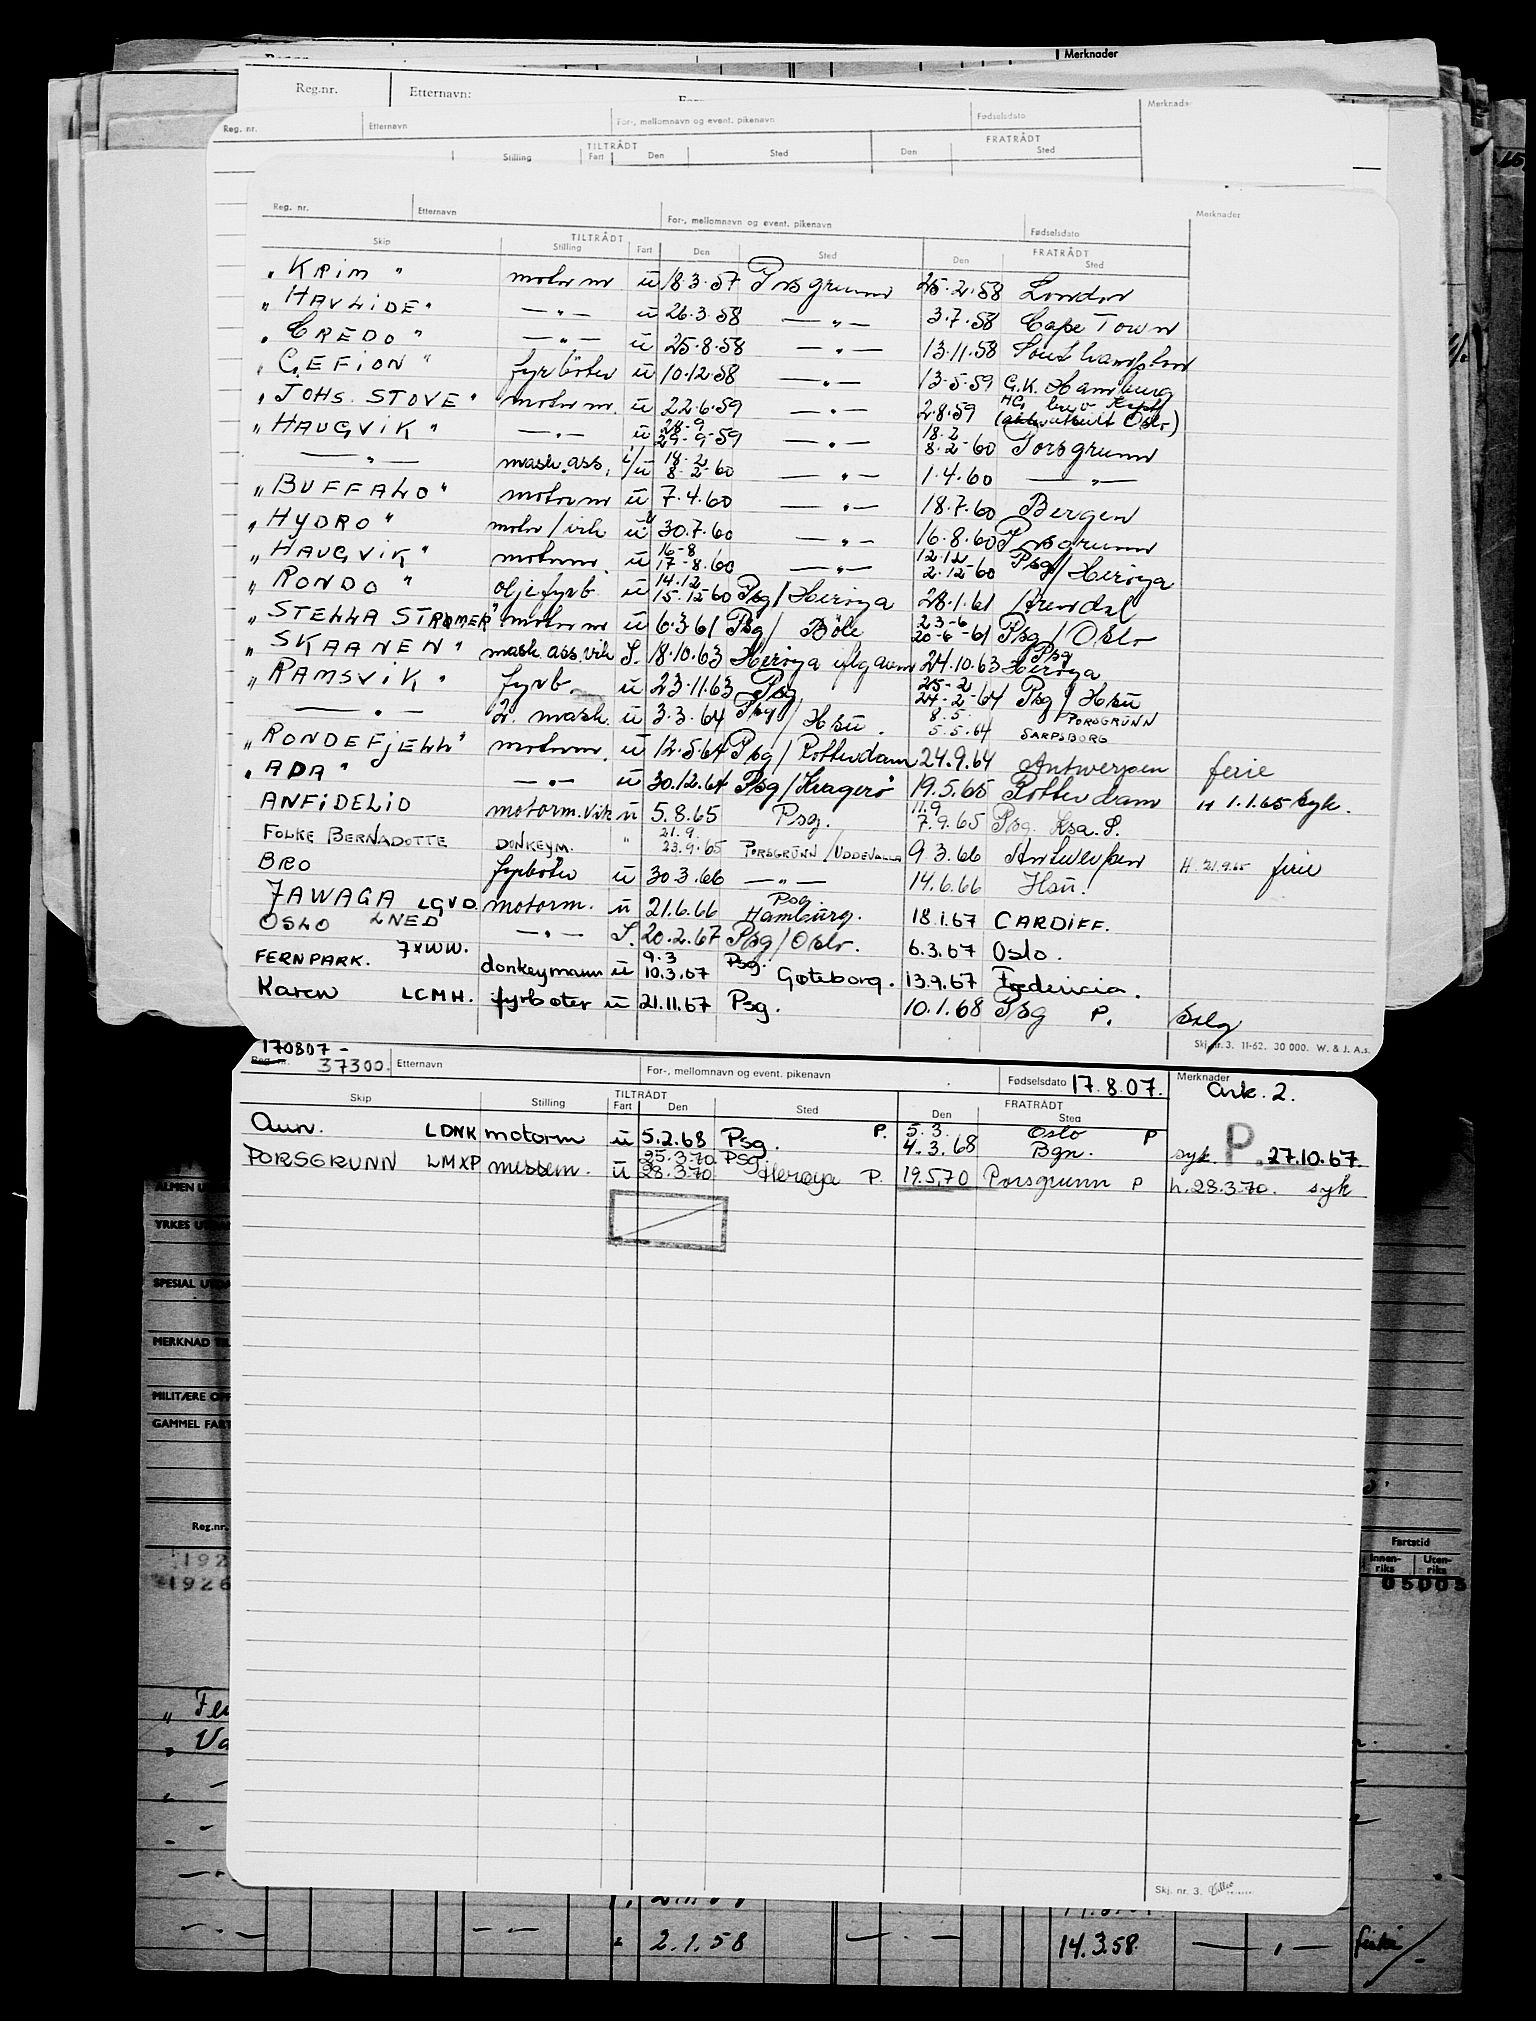 Merknader
Reg.nr. Etternavn:
Reg. nr. Etternavn For-, mellomnavn og event. pikenavn Fødselsdato Merknader
TILTRÅDT FRATRÅDT
Stilling Fart Den Sted Den Sted
Reg. nr. Etternavn For-, mellomnavn og event. pikenavn Fødselsdato Merknader
TILTRÅDT FRATRÅDT
Skip Stilling Fart Den Sted Den Sted
"KRIM" motormr ū 18.3.57 Porsgrunn 25.2.58 London
"HAVLIDE" — " — ū 26.3.58 — " — 3.7.58 Cape Town
"CREDO" — " — ū 25.8.58 — " — 13.11.58 Southampton
"GEFION" fyrbøter ū 10.12.58 — " — 13.5.59 G.K. Hamburg
"JOHS. STOVE" motormr. ū 22.6.59 — " — 2.8.59
"HAUGVIK" — " — ū 28-9 29-9-59 — " — 18.2 8.2-60 Porsgrunn
— " — mask.ass. i/ū 18-2 8.2-60 — " — 1.4.60 — " —
"BUFFALO" motormr ū 7.4.60 — " — 18.7.60 Bergen
"HYDRO" motor/vik ū 30.7.60 — " — 16.8.60 Porsgrunn
"HAUGVIK" motorm. ū 16-8 17-8.60 — " — 12.12 2.12-60 Psg/Herøya
"RONDO" oljefyrb ū 14.12 15.12-60 Psg/Herøya 28.1.61 Arendal
"STELLA STRØMER" motormr ū 6.3.61 Psg/ Böle 23-6 20-6-61 Psg/Oslo
"SKAANEN" mask.ass.vik S. 18.10.63 Herøya 24.10.63 Psg Herøya
"RAMSVIK" fyrb. ū 23.11.63 Psg 25-2 24-2-64 Psg/Hsu
— " — 2. mask. ū 3.3.64 Psg/Hsū. 8.5. 5.5.64 PORSGRUNN SARPSBORG
"RONDEFJELL" motorm. ū 12.5.64 Psg/Rotterdam 24.9.64 Antwerpen ferie
"ADA" — " — ū 30.12.64 Psg/Kragerø 19.5.65 Rotterdam H 1.1.65 syk.
ANFIDELIO motorm.vik ū 5.8.65 Psg. 11.9 7.9.65 Psg.
FOLKE BERNADOTTE DONKEYM. " 21.9. 23.9.65 PORSGRUNN/UDDEVALLA 9.3.66 Antwerpen H. 21.9.65 ferie
BRO fyrbøter ū 30.3.66 — " — 14.6.66 Hsū.
JAWAGA LGVD motorm. ū 21.6.66 Psg Hamburg. 18.1.67 CARDIFF.
OSLO LNED — " — S. 20.2.67 Psg/Oslo. 6.3.67 Oslo.
FERNPARK. 7XWW. donkeymann ū 9.3 10.3.67 Psg. Gøteborg. 13.9.67 Fredericia.
Karen LCMH. fyrbøter ū 21.11.67 Psg. 10.1.68 Psg P. Selg
Skj. nr. 3. 11-62. 30 000. W. & J. A.s.
170807-
Reg. nr. 37300. Etternavn For-, mellomnavn og event. pikenavn Fødselsdato 17.8.07. Merknader Ark. 2.
TILTRÅDT FRATRÅDT
Skip Stilling Fart Den Sted Den Sted
Aun. LDNK motorm ū 5.2.68 Psg. P. 5.3. 4.3.68 Oslo Bgn. P syk. P. 27.10.67.
PORSGRUNN LMXP messem. ū 25.3.70 28.3.70 Psg. Herøya P. 19.5.70 Porsgrunn P h.28.3.70. syk
Skj. nr. 3.
ALMEN U
YRKES U
SPESIAL U
MERKNAD TI
MILITÆRE OP
GAMMEL FART
Reg.nr.
192
1926
Fartstid
Innen-riks Uten-riks
05005
" Fe
" Va
— " — 2.1.58 — " — 14.3.58. — " — ferie